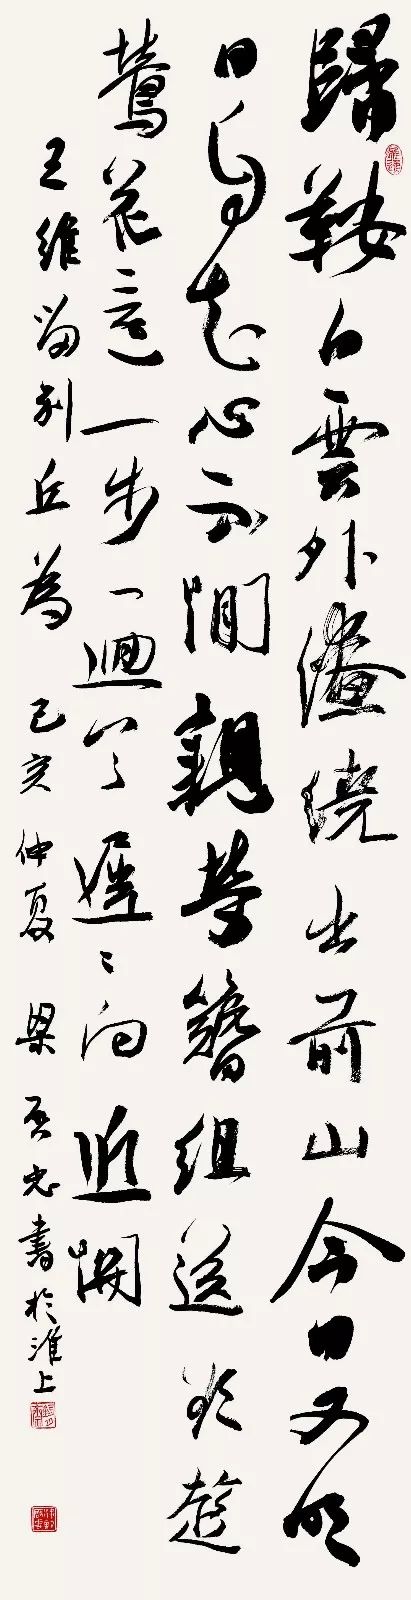 歸鞍白雲外繚繞出前山今日又明
日自知心不閒親勞簪組送欲趁
鶯花還一步一迴首遲遲向近關
王維留別丘為 己亥仲夏 梁启忠書於淮上